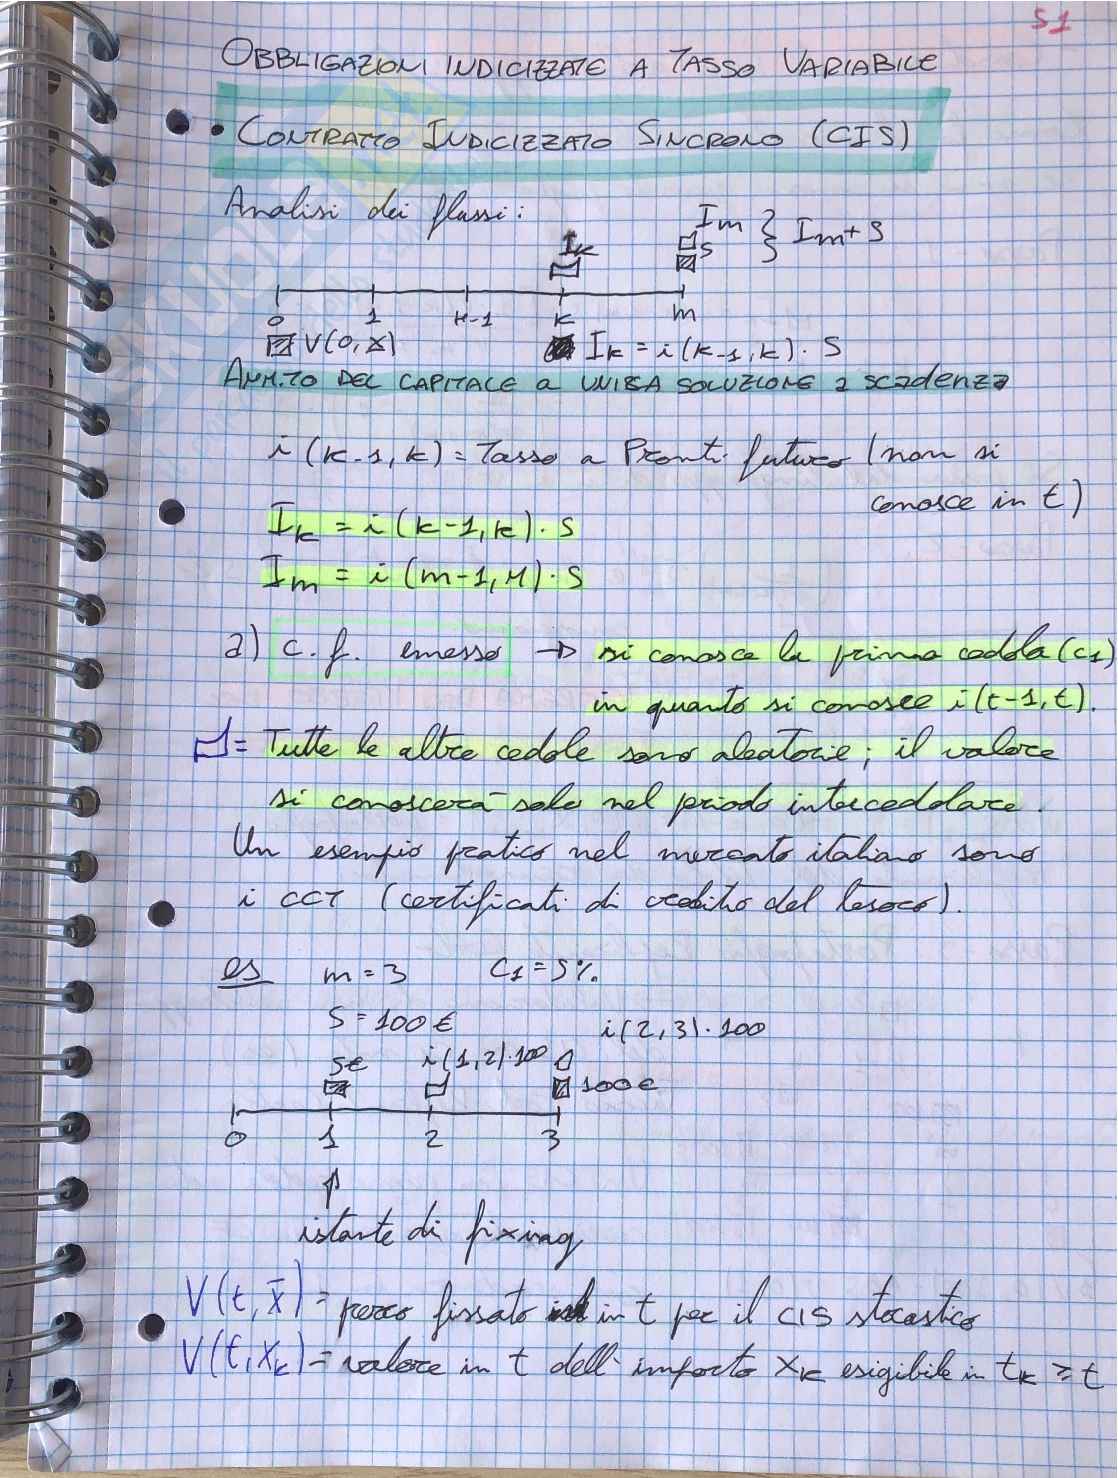 51
OBBLIGAZIONI INDICIZZATE A TASSO VARIABILE
• CONTRATTO INDICIZZATO SINCRONO (CIS)
Analisi dei flussi:
Im } Im + S
S
Ik
0 1 k-1 k m
V(0,x) Ik = i(k-1,k) · S
AMM.TO DEL CAPITALE a UNICA SOLUZIONE a scadenza
i (k-1,k) = Tasso a Pronti futuro (non si
conosce in t)
Ik = i (k-1,k) · S
Im = i (m-1,M) · S
a) c.f. emesso → si conosce la prima cedola (c1)
in quanto si conosce i(t-1,t).
= Tutte le altre cedole sono aleatorie; il valore
si conoscerà solo nel priodo intercedolare.
Un esempio pratico nel mercato italiano sono
i CCT (certificati di credito del tesoro).
es m = 3 C1 = 5%.
S = 100 € i(2,3) · 100
5€ i(1,2) · 100
100€
0 1 2 3
istante di fixing
V(t,x̄) = perzo fissato in t per il CIS stocastico
V(t,xk) = valore in t dell'importo xk esigibile in tk ≥ t